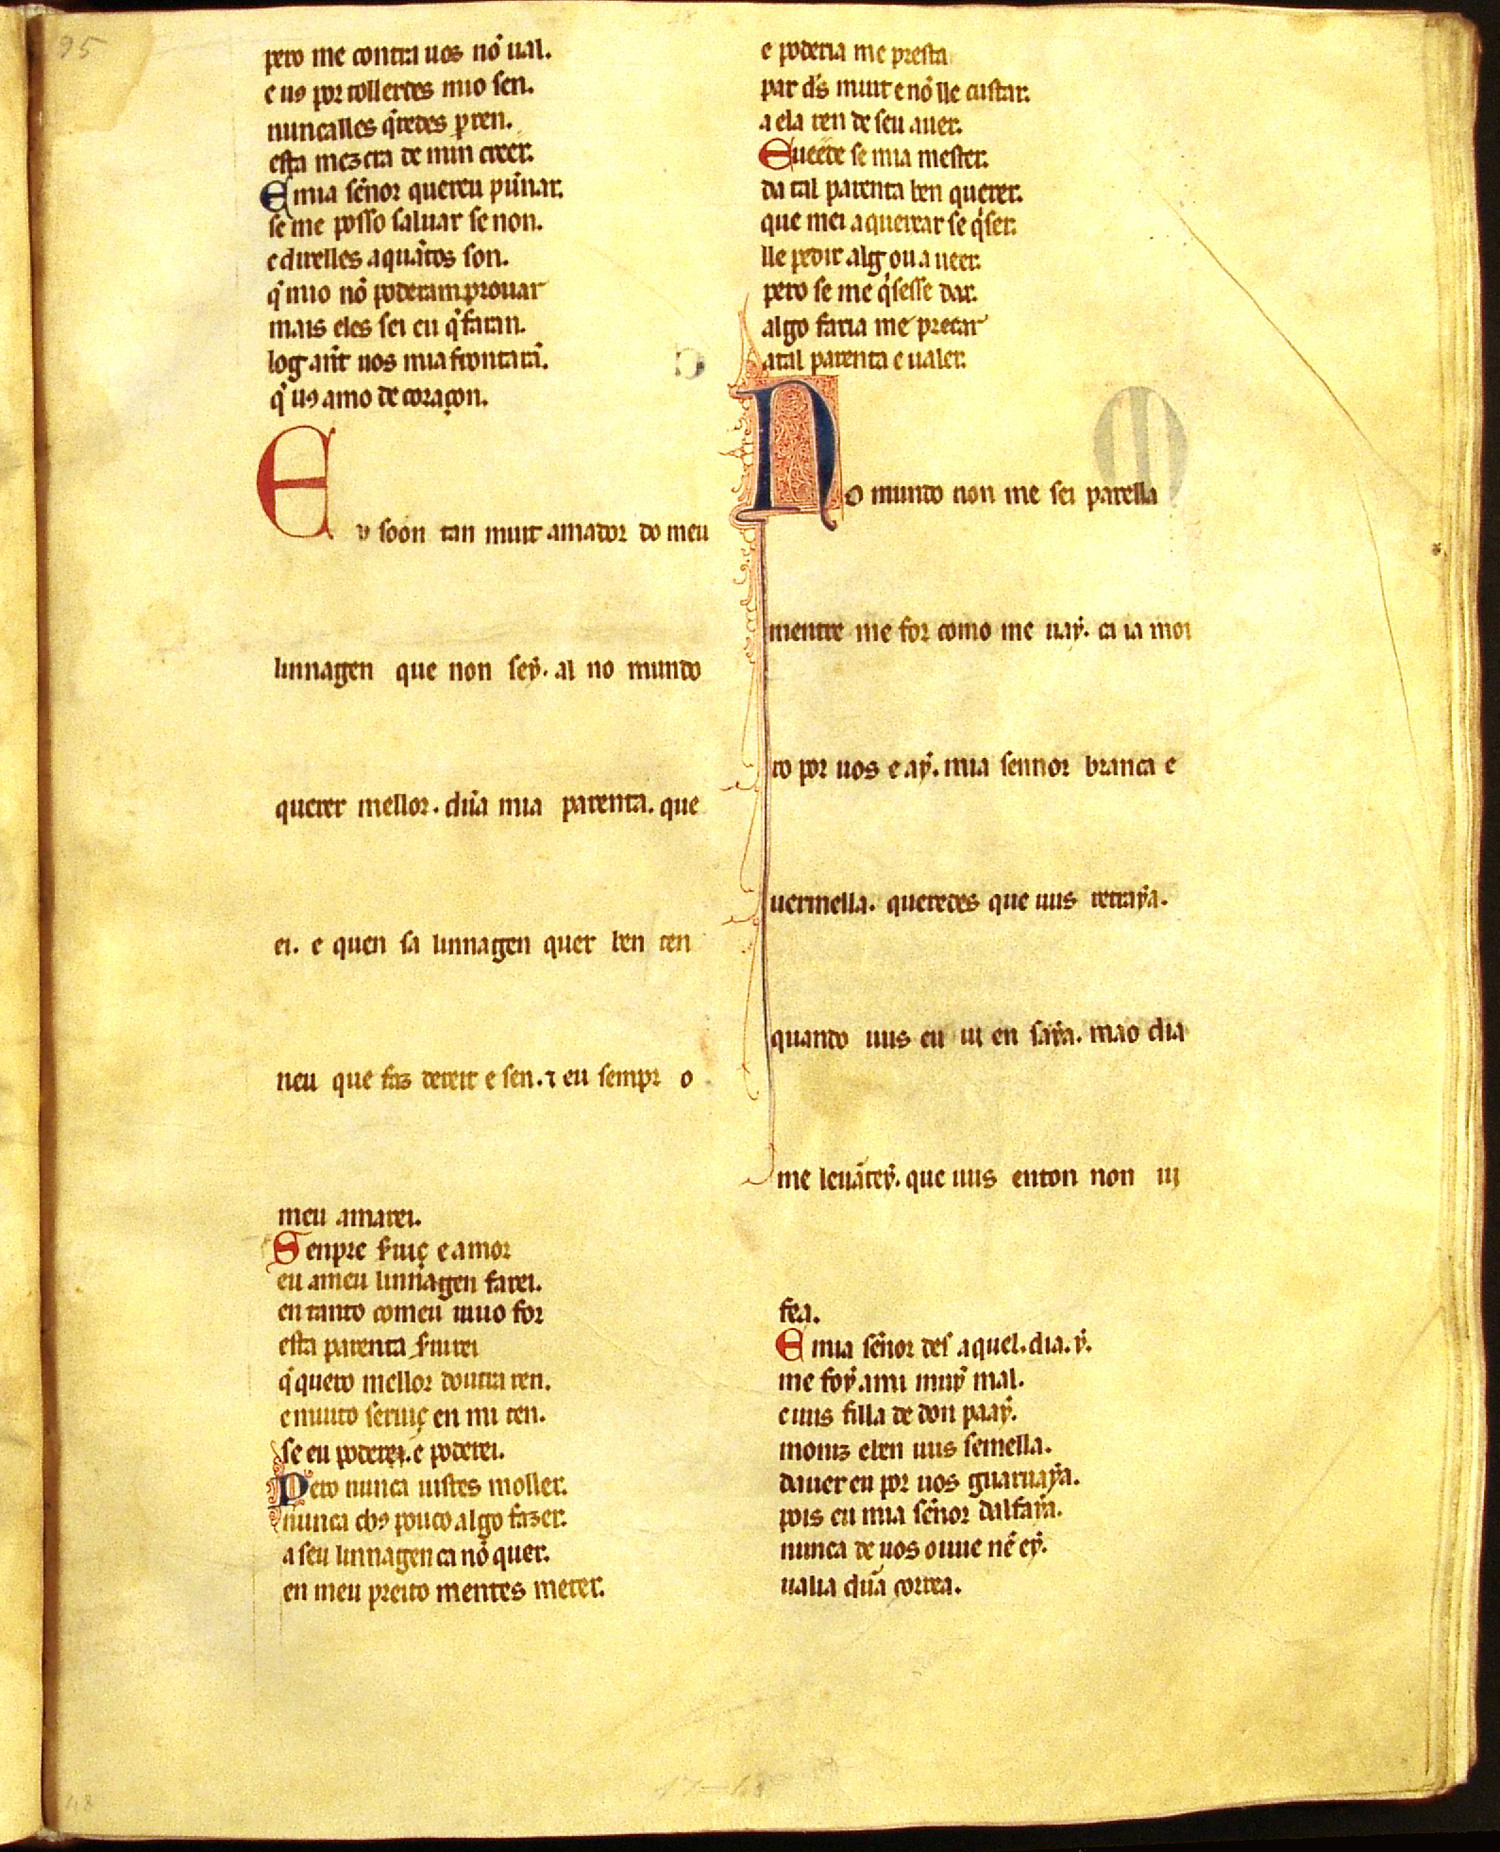 95
pero me contra uos nõ ual.
e uꝯ por tollerdes mio sen.
nuncalles q̃redes p ren.
esta mezcra de min creer.
E mia sẽnor quereu punar.
se me posso saluar se non.
e direlles aquãtos son.
q̃ mio nõ poderam prouar
mais eles sei eu q̃ faran.
log ant uos mia frontarã.
q̃ uꝯ amo de coraçon.
Eu soon tan muit amador do meu
linnagen que non seẏ. al no mundo
querer mellor. dũa mia parenta. que
ei. e quen sa linnagen quer ben ten
neu que faz dereit e sen. ⁊ eu sempr o
meu amarei.
Senpre ſuiç e amor
eu a meu linnagen farei.
en tanto comeu uiuo for
esta parenta ſuirei
q̃ quero mellor doutra ren.
e muito seruiç en mi ten.
se eu poderei. e poderei.
Pero nunca uistes moller.
nunca chꝯ pouco algo fazer.
a seu linnagen ca nõ quer.
en meu preito mentes meter.
e poderia me presta
par d̃s muit e nõ lle custar.
a ela ren de seu auer.
Sueẽde se mia mester.
da tal parenta ben querer.
que mei a queixar se q̃ser.
lle pedir alg ou a ueer.
pero se me q̃sesse dar.
algo faria me preçar
atal parenta e ualer.
No mundo non me sei parella
mentre me for como me uaẏ. ca ia moi
ro por uos e aẏ. mia sennor branca e
uermella. queredes que uus retraẏa.
quando uus eu ui en saẏa. mao dia
me leuãteẏ. que uus enton non ui
fea.
E mia sẽnor des aquel. dia. ẏ.
me foẏ. a mi muẏ mal.
e uus filla de don paaẏ.
moniz e ben uus semella.
dauer eu por uos guaruaẏa.
pois eu mia sẽnor dalfaẏa.
nunca de uos ouue nẽ eẏ.
ualia dũa correa.
48